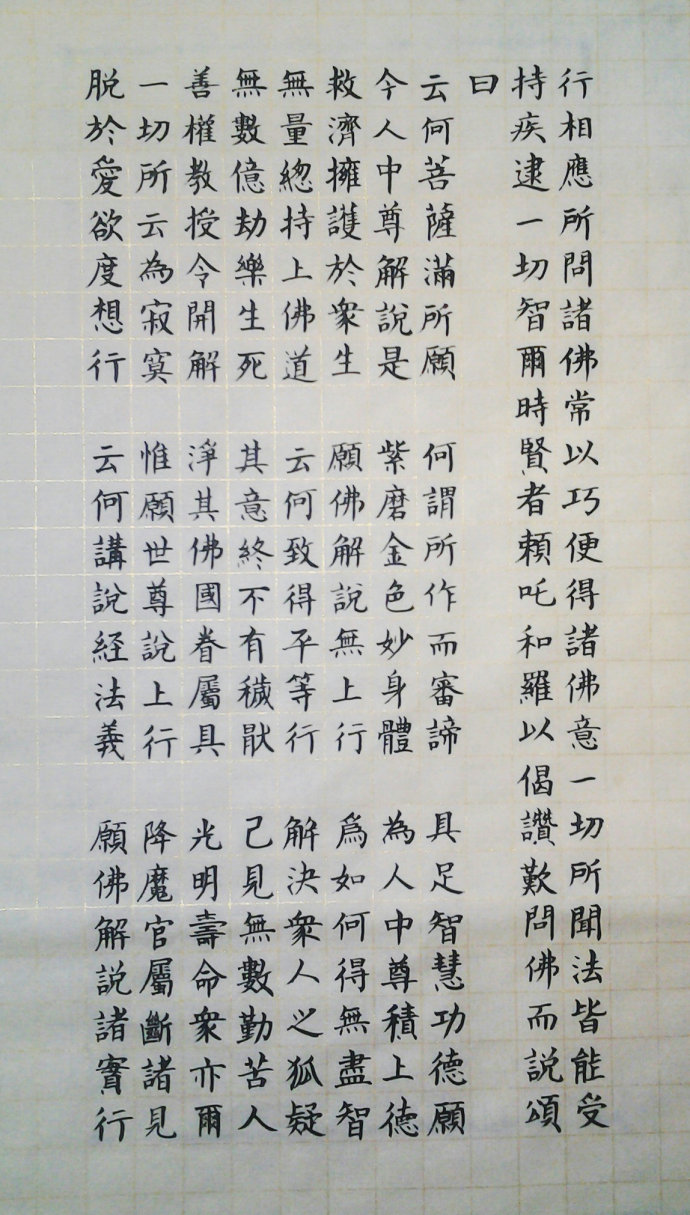 行相應所問諸佛常以巧便得諸佛意一切所聞法皆能受
持疾逮一切智爾時賢者賴吒和羅以偈讚歎問佛而說頌
曰
云何菩薩滿所願 何謂所作而審諦 具足智慧功德願
今人中尊解說是 紫磨金色妙身體 為人中尊積上德
救濟擁護於衆生 願佛解說無上行 爲如何得無盡智
無量緫持上佛道 云何致得平等行 解決衆人之狐疑
無數億劫樂生死 其意終不有穢猒 己見無數勤苦人
善權教授令開解 淨其佛國眷屬具 光明壽命衆亦爾
一切所云為寂寞 惟願世尊說上行 降魔官屬斷諸見
脫於愛欲度想行 云何講說経法義 願佛解說諸實行